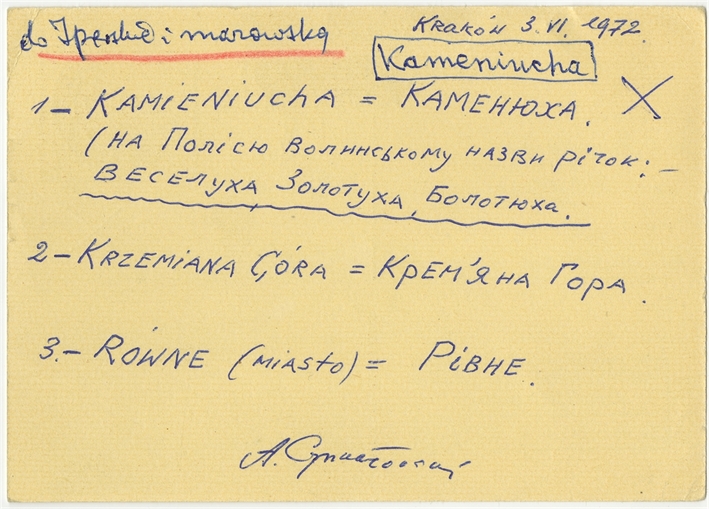 do i marowską
Kraków 3. VI. 1972.
Kameniucha
1 – KAMIENIUCHA = КАМЕНЮХА.
(НА ПОЛІСЮ ВОЛИНСЬКОМУ НАЗВИ РІЧОК: –
ВЕСЕЛУХА, ЗОЛОТУХА, БОЛОТЮХА.
2 – KRZEMIANA GÓRA = КРЕМ'ЯНА ГОРА.
3. – RÓWNE (MIASTO) = РІВНЕ.
А.